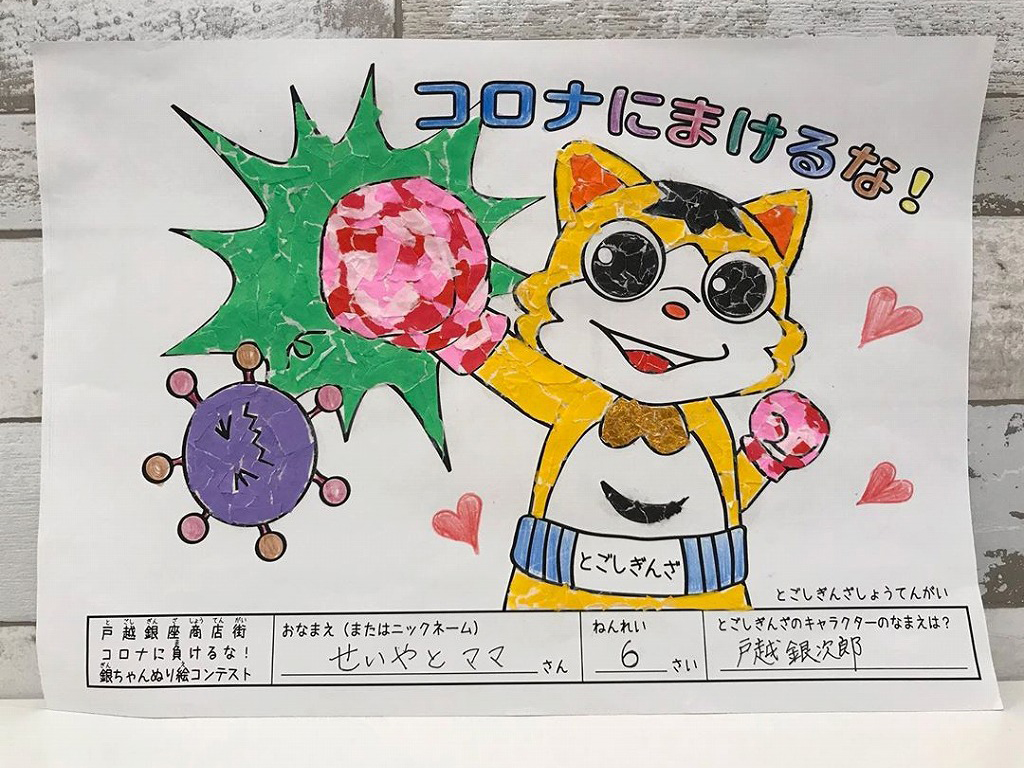 コロナにまけるな!
とごしぎんざ
とごしぎんざしょうてんがい
と ごし ぎん ざ しょう てん がい
戸越銀座商店街
ま
コロナに負けるな!
ぎん え
銀ちゃんぬり絵コンテスト
おなまえ(またはニックネーム)
せいやとママ さん
ねんれい
6 さい
とごしぎんざのキャラクターのなまえは?
戸越銀次郎